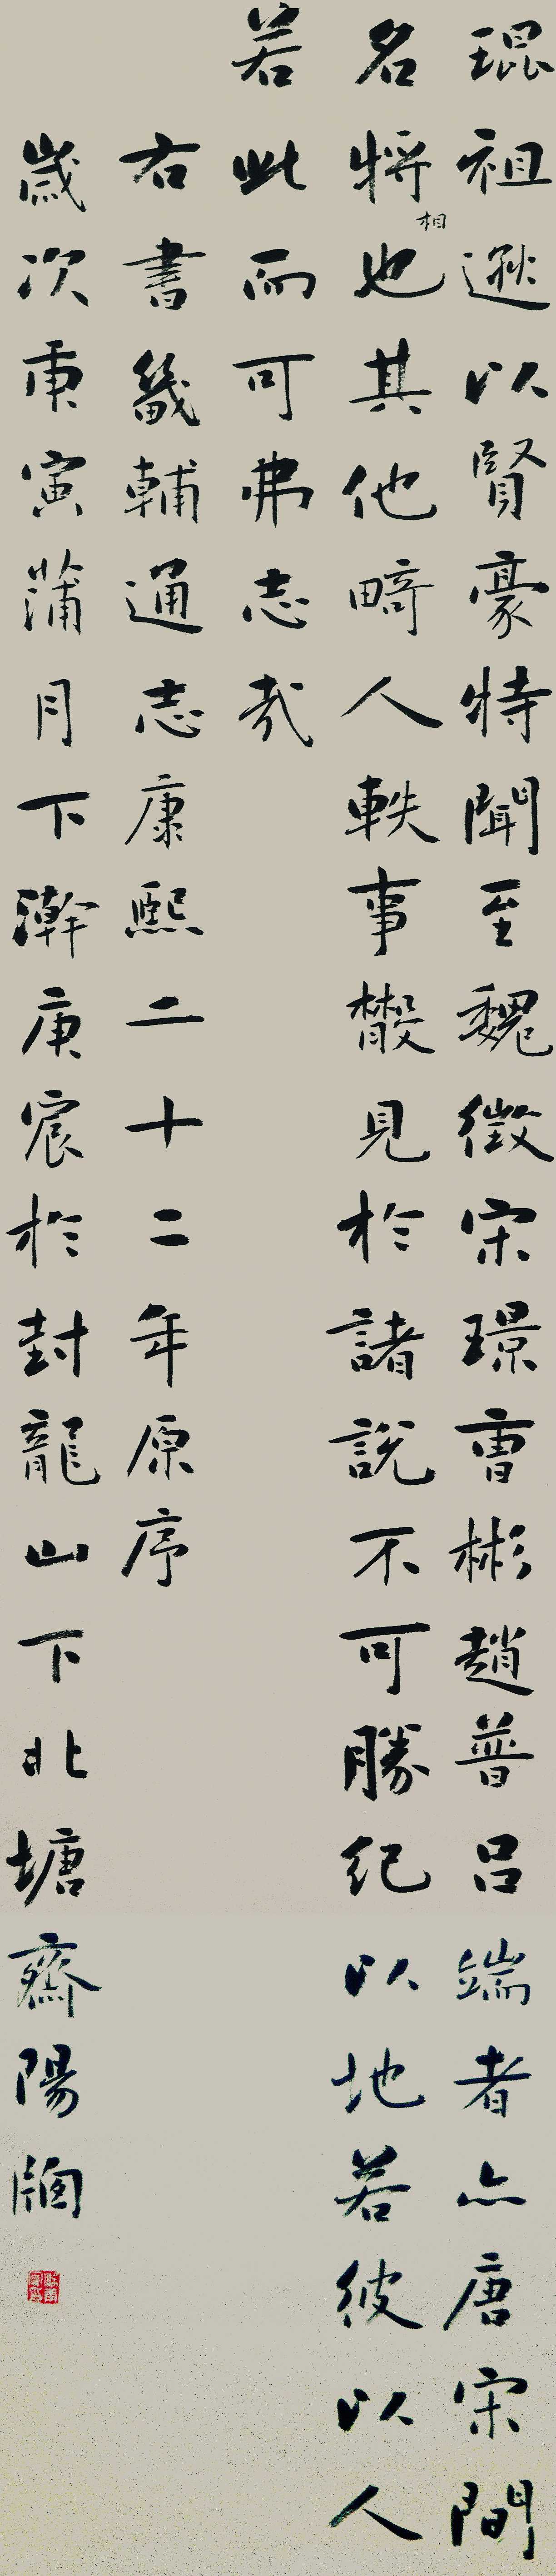 琨祖逖以賢豪特聞至魏徵宋璟曹彬趙普呂端者亦唐宋間
名將相也其他畸人軼事散見於諸說不可勝紀以地若彼以人
若此而可弗志哉
右書畿輔通志康熙二十二年原序
歲次庚寅蒲月下澣庚宸於封龍山下北塘齋陽牖